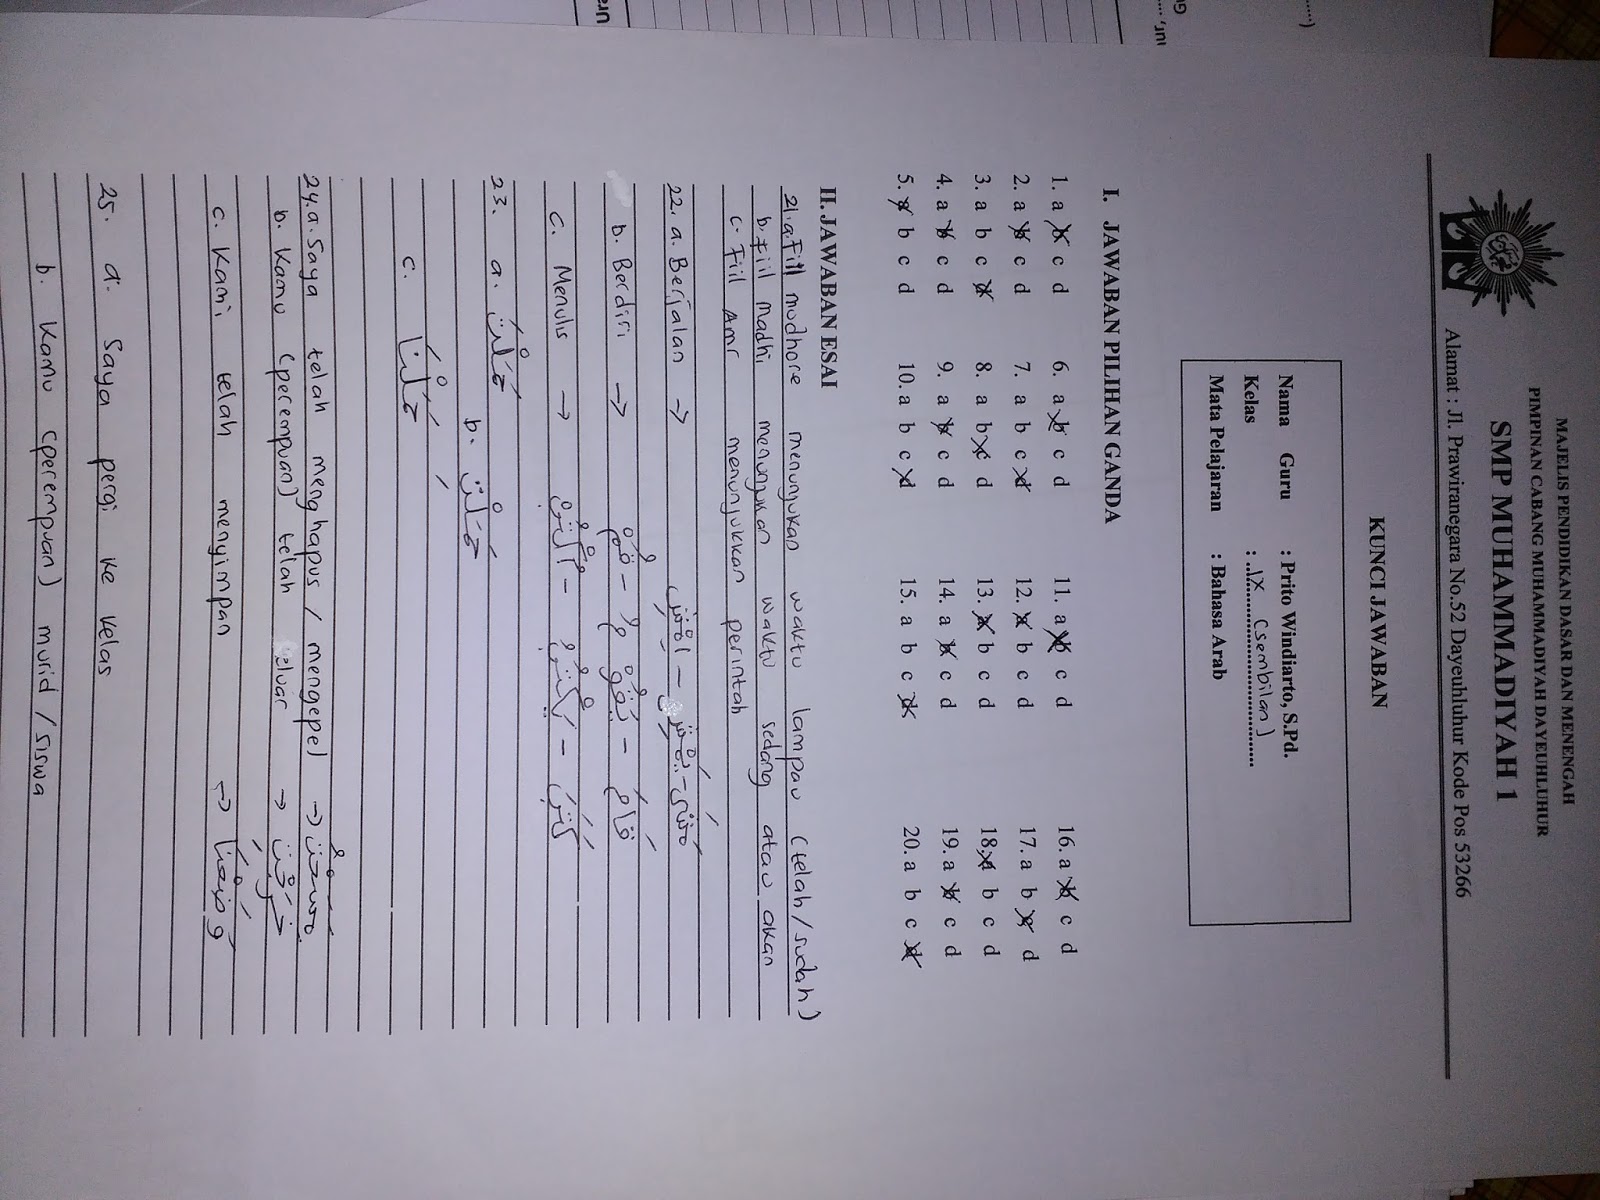 MAJELIS PENDIDIKAN DASAR DAN MENENGAH
PIMPINAN CABANG MUHAMMADIYAH DAYEUHLUHUR
SMP MUHAMMADIYAH 1
Alamat : Jl. Prawiranegara No.52 Dayeuhluhur Kode Pos 53266
KUNCI JAWABAN
Nama Guru : Prito Windiarto, S.Pd.
Kelas : IX (sembilan)
Mata Pelajaran : Bahasa Arab
I. JAWABAN PILIHAN GANDA
1. a b c d 6. a b c d 11. a b c d 16. a b c d
2. a b c d 7. a b c d 12. a b c d 17. a b c d
3. a b c d 8. a b c d 13. a b c d 18. a b c d
4. a b c d 9. a b c d 14. a b c d 19. a b c d
5. a b c d 10. a b c d 15. a b c d 20. a b c d
II. JAWABAN ESAI
21. a. Fiil mudhore menunjukan waktu lampau (telah/sudah)
b. Fiil madhi menunjukan waktu sedang atau akan
c. Fiil Amr menunjukkan perintah
22. a. Berjalan →
b. Berdiri → قَامَ - يَقُوْمُ - قُمْ
c. Menulis → كَتَبَ - يَكْتُبُ - اُكْتُبْ
23. a.
b.
c.
24. a. Saya telah menghapus / mengepel → مَسَحْتُ
b. Kamu (perempuan) telah keluar → خَرَجْتِ
c. Kami telah menyimpan → وَضَعْنَا
25. a. Saya pergi ke kelas
b. Kamu (perempuan) murid / siswa